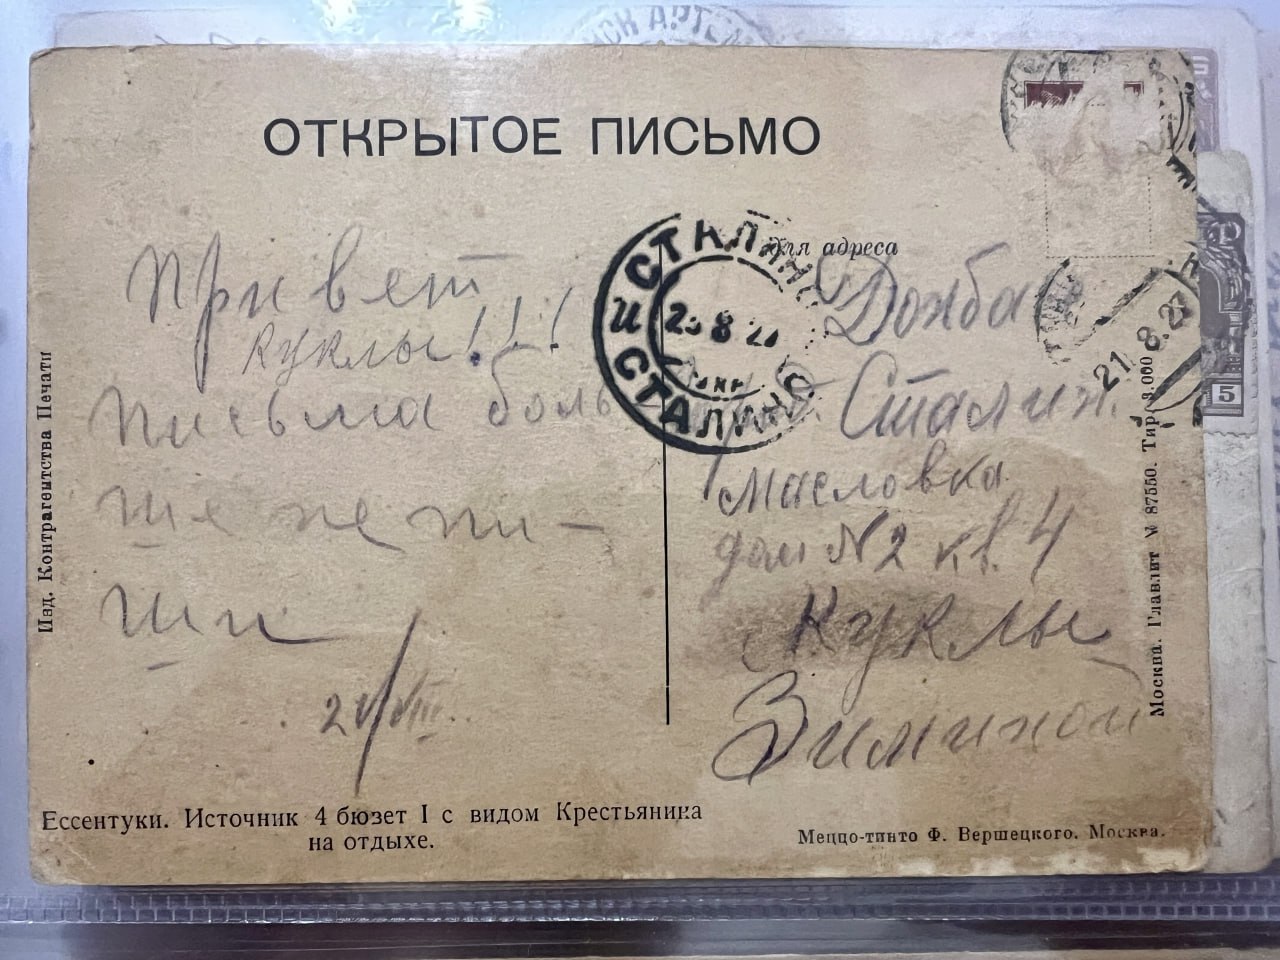 ОТКРЫТОЕ ПИСЬМО
для адреса
Привет
куклы!!!
Письма боль
ше не пи-
ши
21/VIII.
Донбас
Сталин.
Масловка
дом №2 кв. 4
Куклы
Зиминой
СТАЛИНО
СТАЛИНО
21.8.27
5
Изд. Контрагентства Печати
Москва. Главлит № 87550. Тир.
Ессентуки. Источник 4 бювет I с видом Крестьяника
на отдыхе.
Меццо-тинто Ф. Вершецкого. Москва.